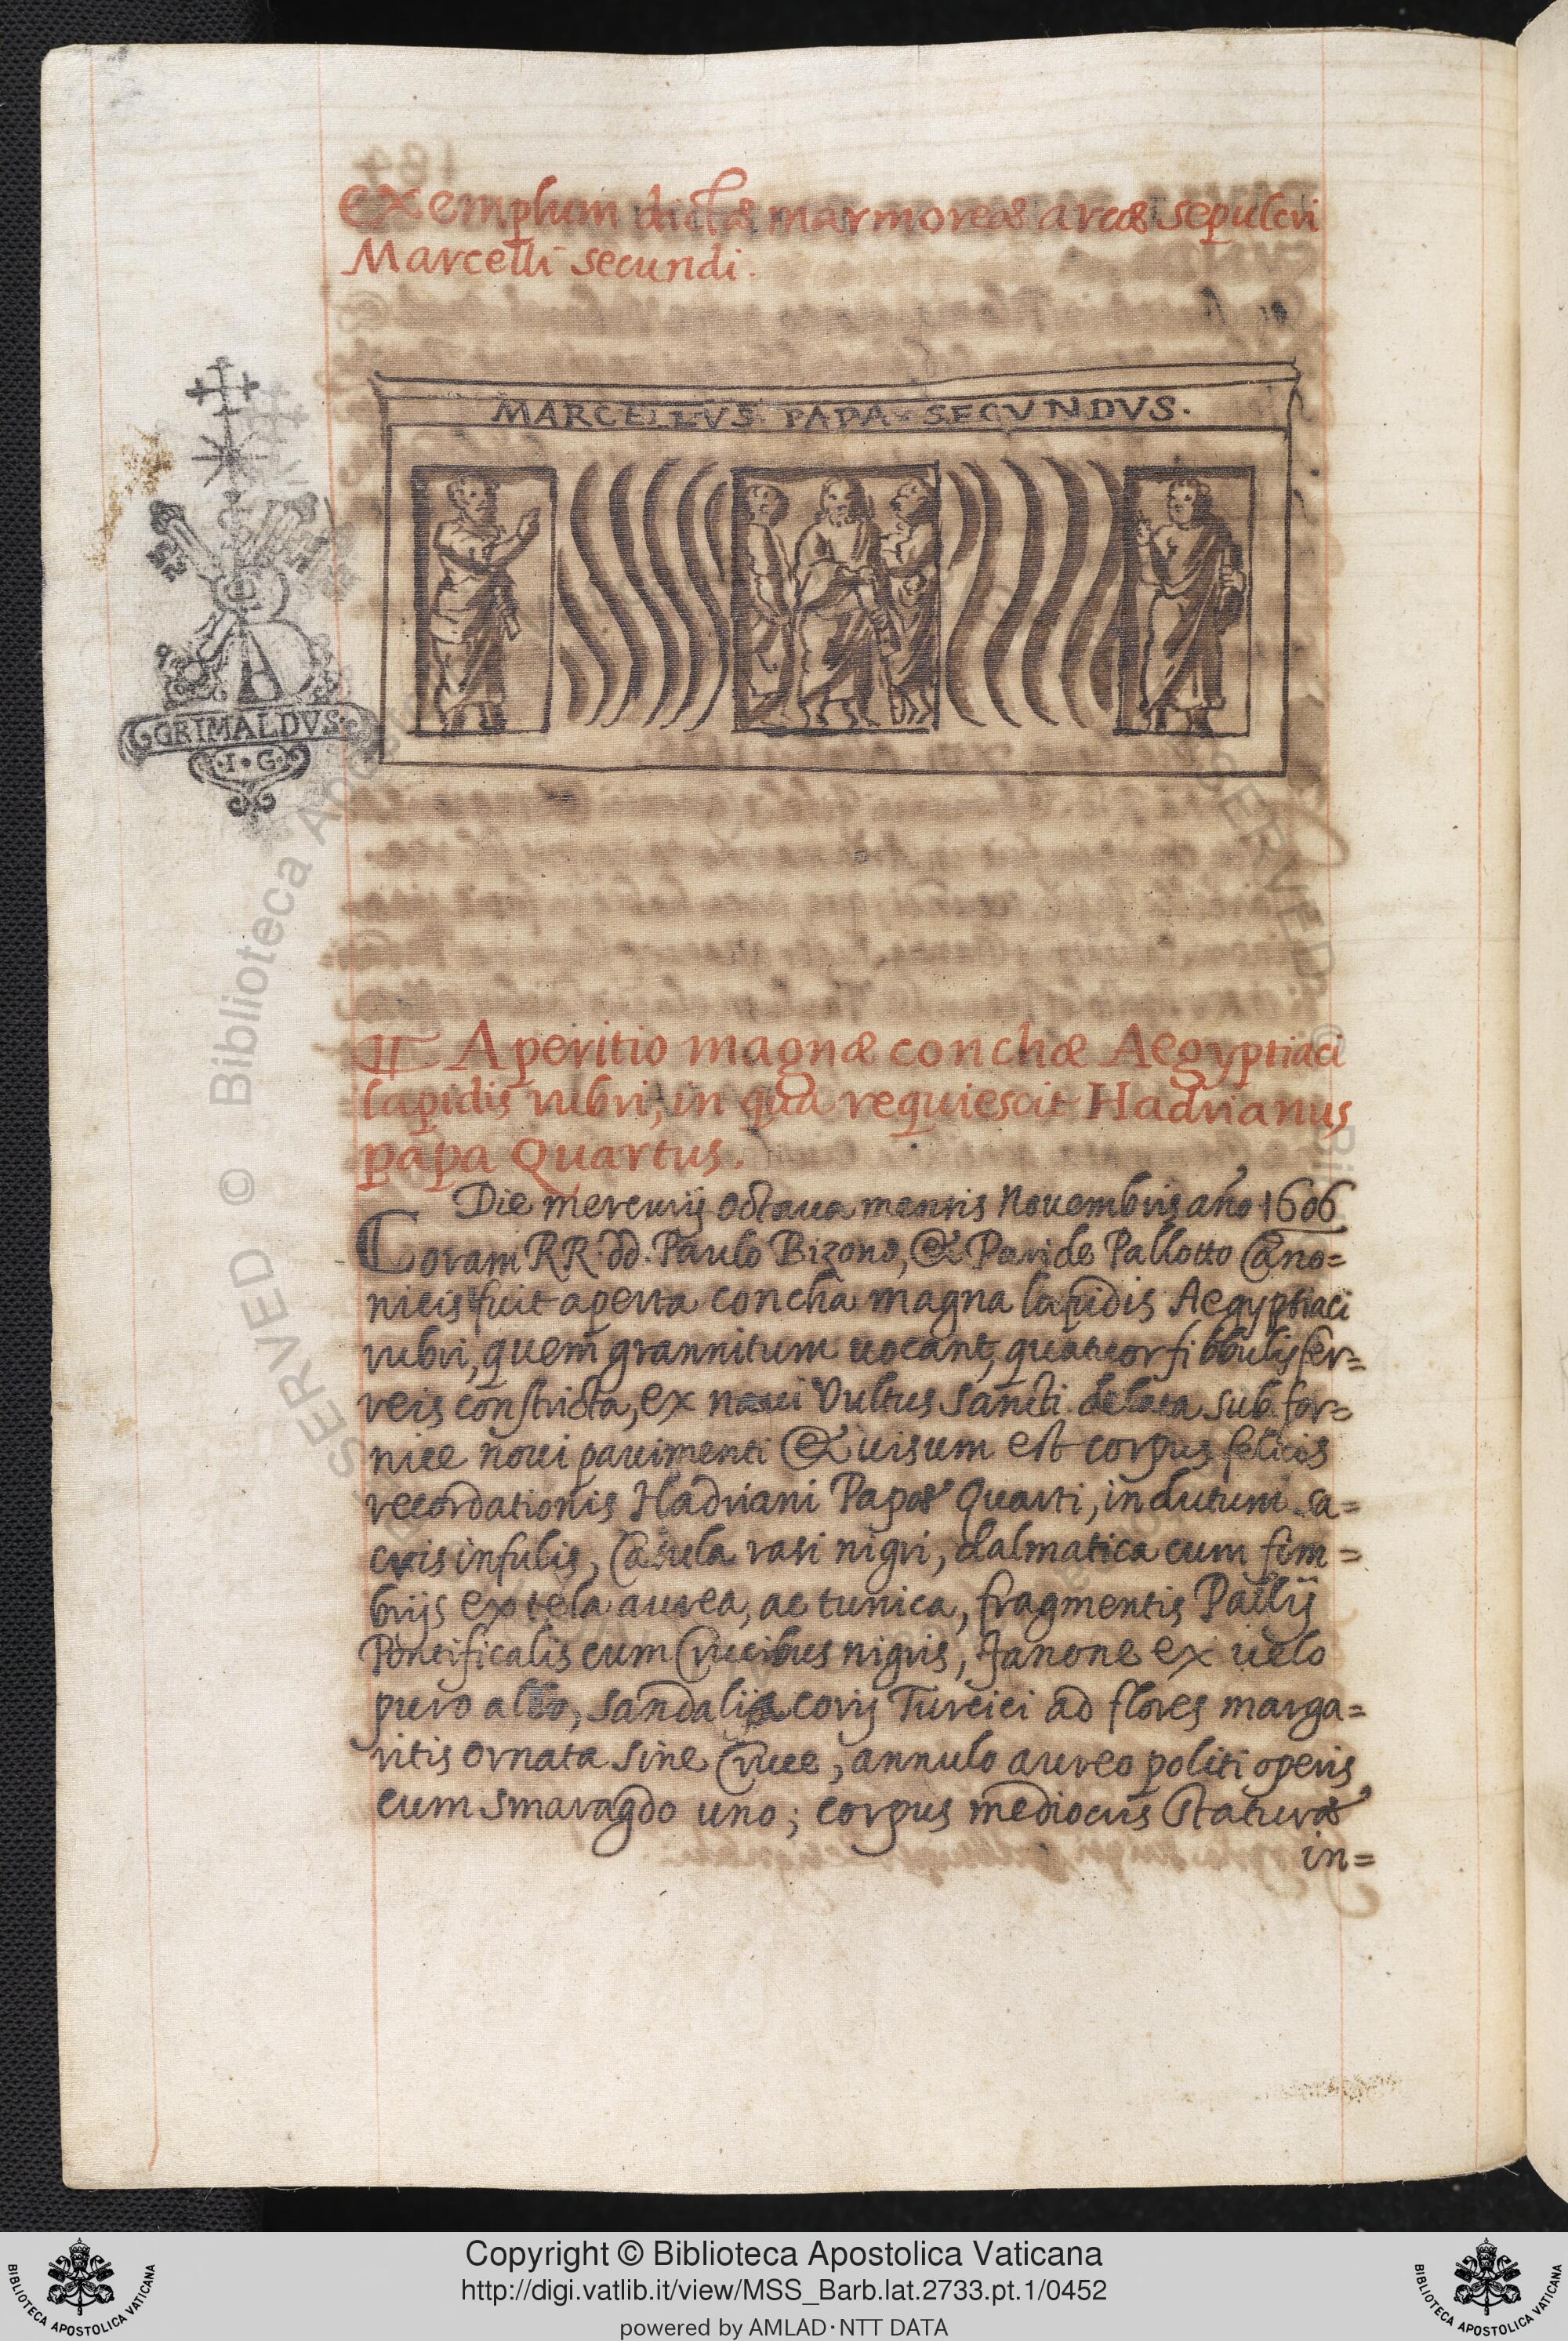 Exemplum dictæ marmoreæ arcæ sepulcri
Marcelli secundi.
MARCELLVS · PAPA · SECVNDVS ·
GRIMALDVS
· I · G ·
¶ Aperitio magnæ conchæ Aegyptiaci
lapidis rubri, in qua requiescit Hadrianus
papa Quartus.
Die mercurij octaua mensis Nouembris año 1606
Coram RR. dd. Paulo Bizono, & Paride Pallotto Cano=
nicis fuit aperta concha magna lapidis Aegyptiaci
rubri, quem grannitum uocant, quatuor fibbulis fer=
reis constricta, ex naui Vultus Sancti delata sub for=
nice noui pauimenti & uisum est corpus felicis
recordationis Hadriani Papæ Quarti, indutum sa=
cris infulis, Casula rasi nigri, dalmatica cum fim=
brijs ex tela aurea, ac tunica, fragmentis Pallij
Pontificalis cum Crucibus nigris, fanone ex uelo
puro albo, sandalijs corij Turcici ad flores marga=
ritis ornata sine Cruce, annulo aureo politi operis
cum smaragdo uno; corpus mediocris staturæ
in=
© Biblioteca
SERVED ©
Copyright © Biblioteca Apostolica Vaticana
http://digi.vatlib.it/view/MSS_Barb.lat.2733.pt.1/0452
powered by AMLAD·NTT DATA
BIBLIOTECA APOSTOLICA VATICANA
BIBLIOTECA APOSTOLICA VATICANA